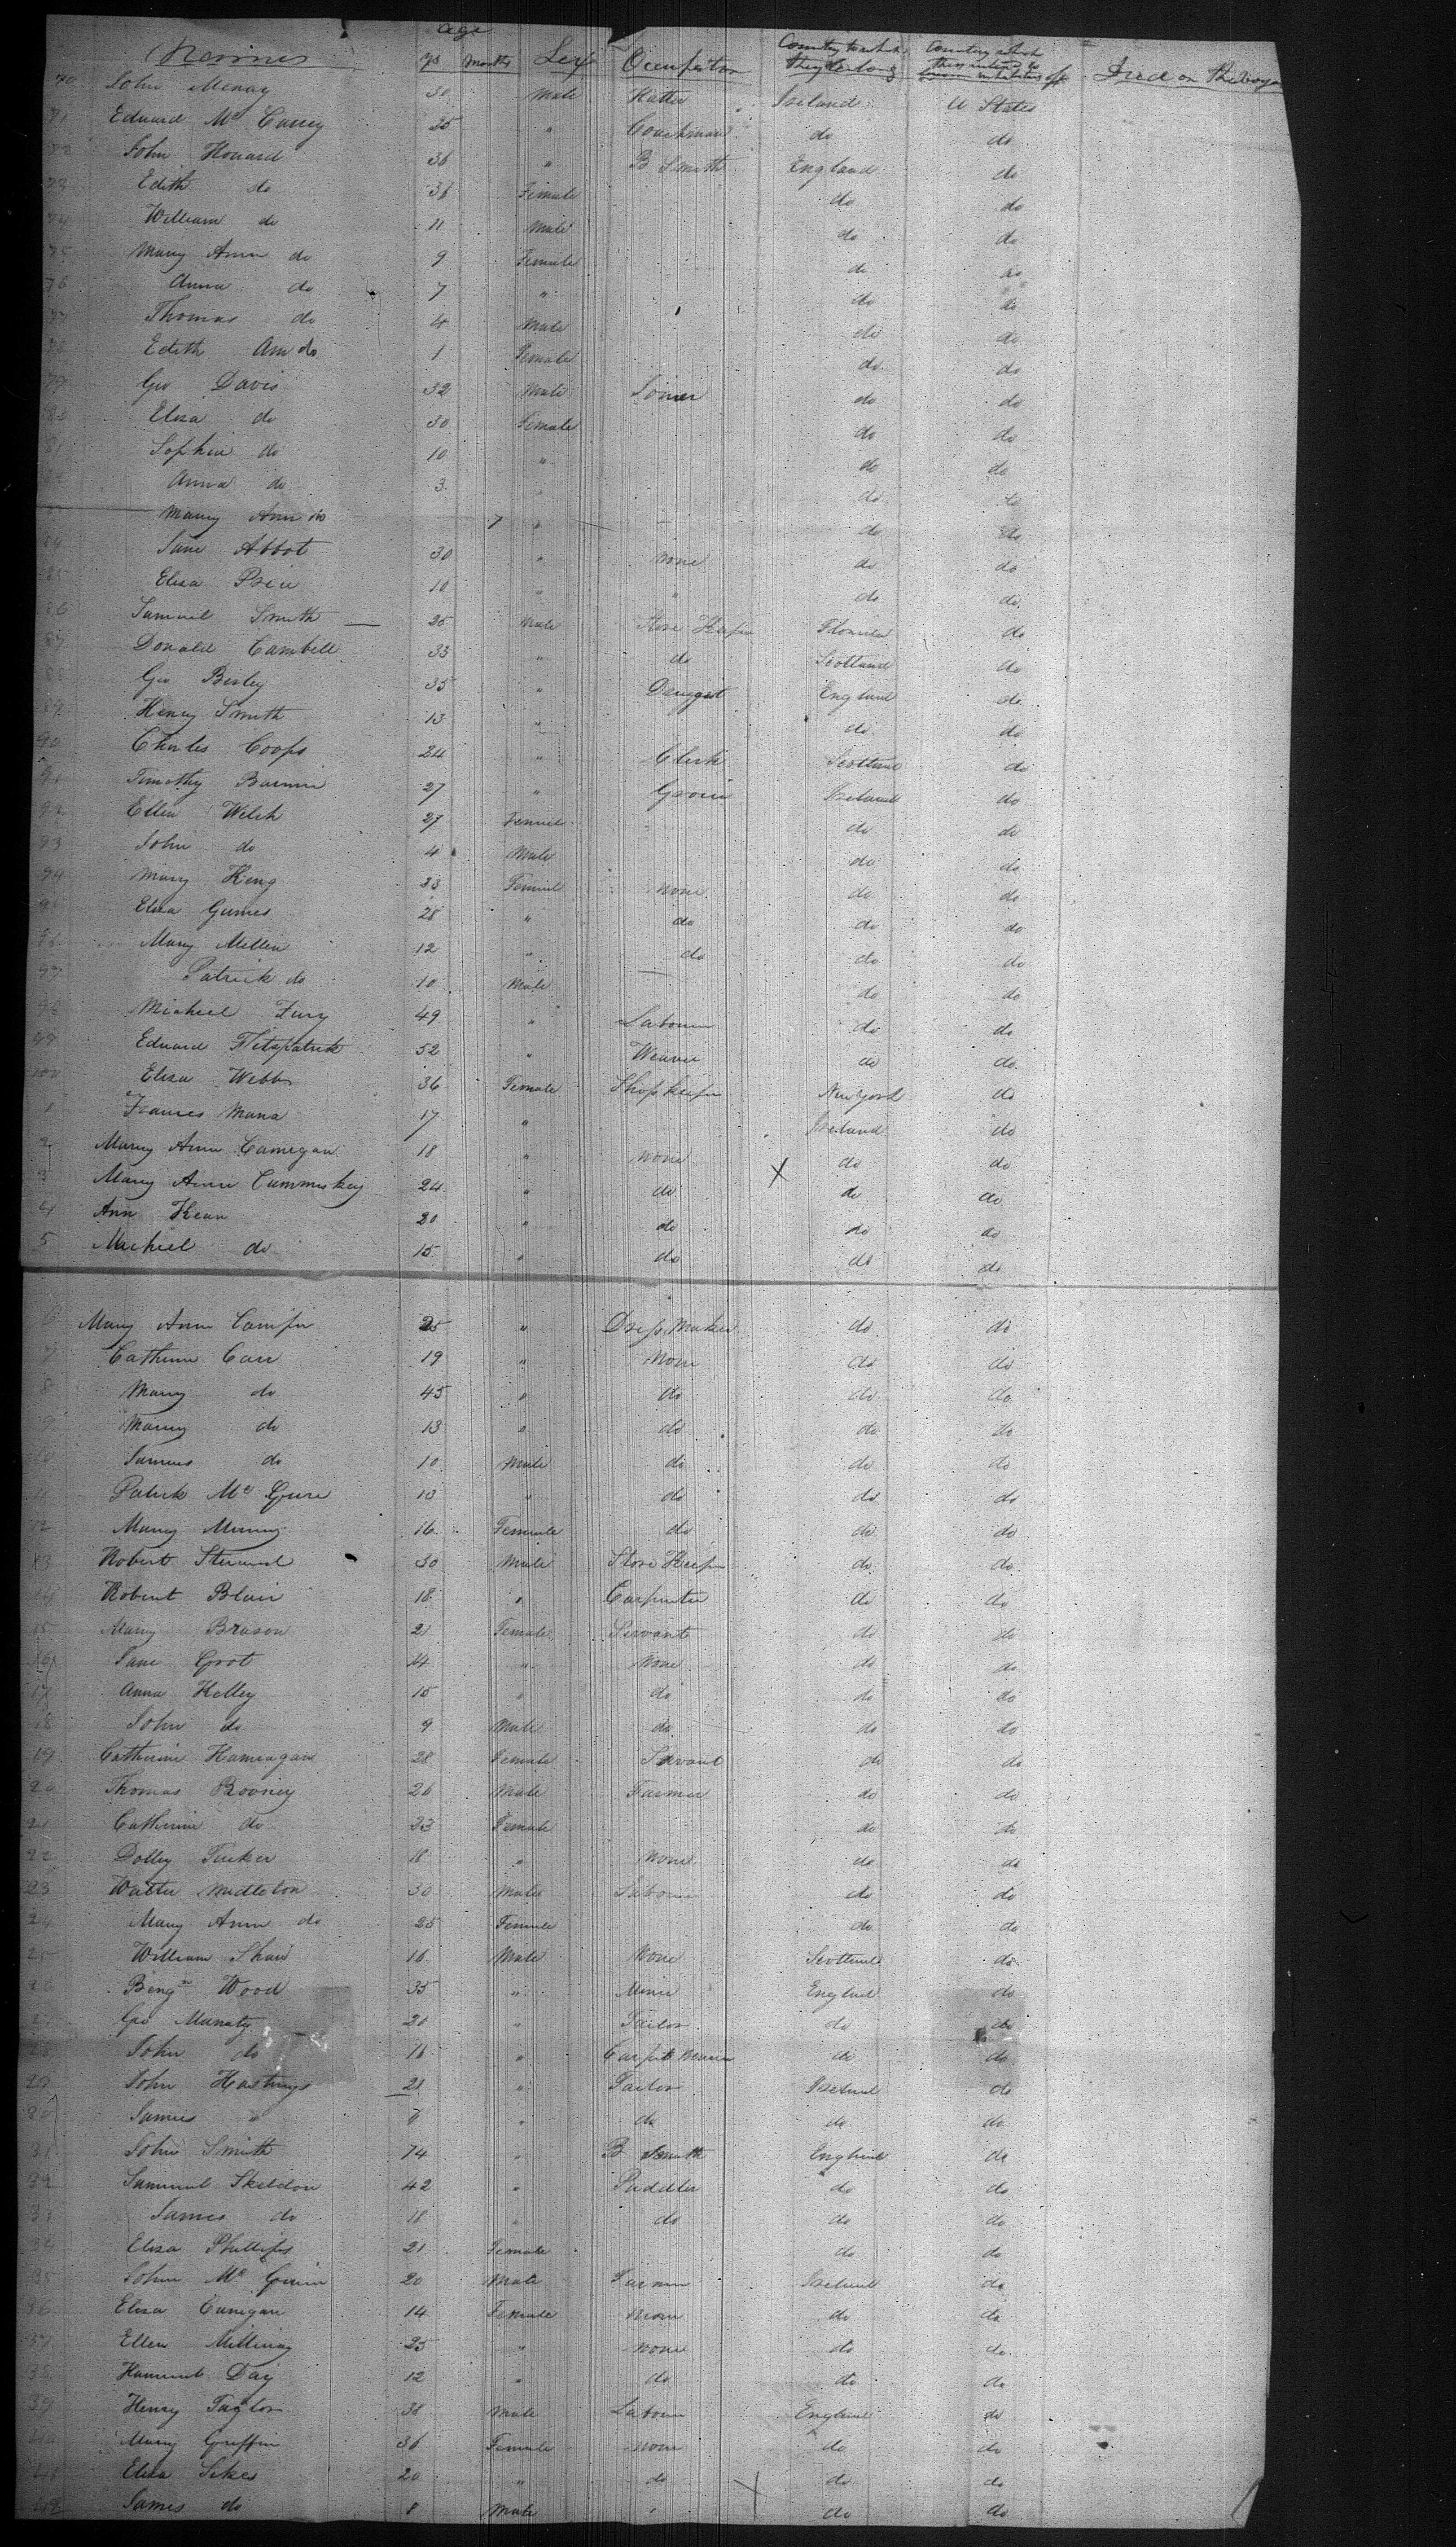 Names Age ys Months Sex Occupation Country to which they belong Country which they intend to become inhabitants of Died on the Voyage
70 John 30 Male Hatter Ireland U States
71 Edward Mc 25 " Coachman do do
72 John Howard 36 " B Smith England do
73 Edith do 36 Female do do
74 William do 11 Male do do
75 Mary Ann do 9 Female do do
76 Anna do 7 " do do
77 Thomas do 4 Male do do
78 Edith Ann do 1 Female do do
79 Geo Davis 32 Male Joiner do do
80 Elisa do 30 Female do do
81 Sophia do 10 " do do
82 Anna do 3 " do do
83 Mary Ann do 7 " do do
84 Jane Abbot 30 " None do do
85 Elisa 10 " " do do
86 Samuel Smith 25 Male Store Keeper do
87 Donald Cambell 33 " do Scotland do
88 Geo 35 " Druggist England do
89 Henry Smith 13 " do do
90 Charles Coops 24 " Clerk Scotland do
91 Timothy 27 " Ireland do
92 Ellen Welch 27 Femel do do
93 John do 4 Male do do
94 Mary King 33 Femel None do do
95 Elisa 28 " do do do
96 Mary Mellen 12 " do do do
97 Patrick do 10 Male do do
98 Micheel Fury 49 " Labourer do do
99 Edward Fitzpatrick 52 " Weaver do do
100 Elisa Webb 36 Female Shop keeper New York do
1 Frances Mana 17 " Ireland do
2 Mary Ann 18 " None X do do
3 Mary Ann Cummiskey 24 " do do do
4 Ann Kean 20 " do do do
5 Micheel do 15 " do do do
6 Mary Ann 25 " Dress Maker do do
7 Catherine Carr 19 " None do do
8 Mary do 45 " do do do
9 Mary do 13 " do do do
10 James do 10 Male do do do
11 Patrick Mc 13 " do do do
12 Mary 16 Female do do do
13 Robert 30 Male Store Keeper do do
14 Robert Blair 18 " Carpenter do do
15 Mary 21 Female Servant do do
16 Jane Grot 14 " None do do
17 Anna Kelley 15 " do do do
18 John do 9 Male do do do
19 Catherine 28 Female Servant do do
20 Thomas Rooney 26 Male Farmer do do
21 Catherine do 23 Female do do
22 Dolley Tucker 18 " None do do
23 Walter Midleton 30 Male Labourer do do
24 Mary Ann do 25 Female do do
25 William Shaw 16 Male None Scotland do
26 Benjn Wood 35 " Miner England do
27 Geo 20 " Tailor do do
28 John do 16 " Carpet Weaver do do
29 John Hastings 21 " Tailor Ireland do
30 James " " do do do
31 John Smith 74 " B Smith England do
32 Samuel Skeldon 42 " Puddler do do
33 James do 18 " do do do
34 Elisa Phillips 21 Female do do
35 John Mc 20 Male Farmer Ireland do
36 Elisa 14 Female None do do
37 Ellen 25 " None do do
38 Day 12 " do do do
39 Henry Taylor 38 Male Labourer England do
40 Mary Griffin 36 Female None do do
41 Elisa Sikes 20 " do X do do
42 James do 8 Male " do do